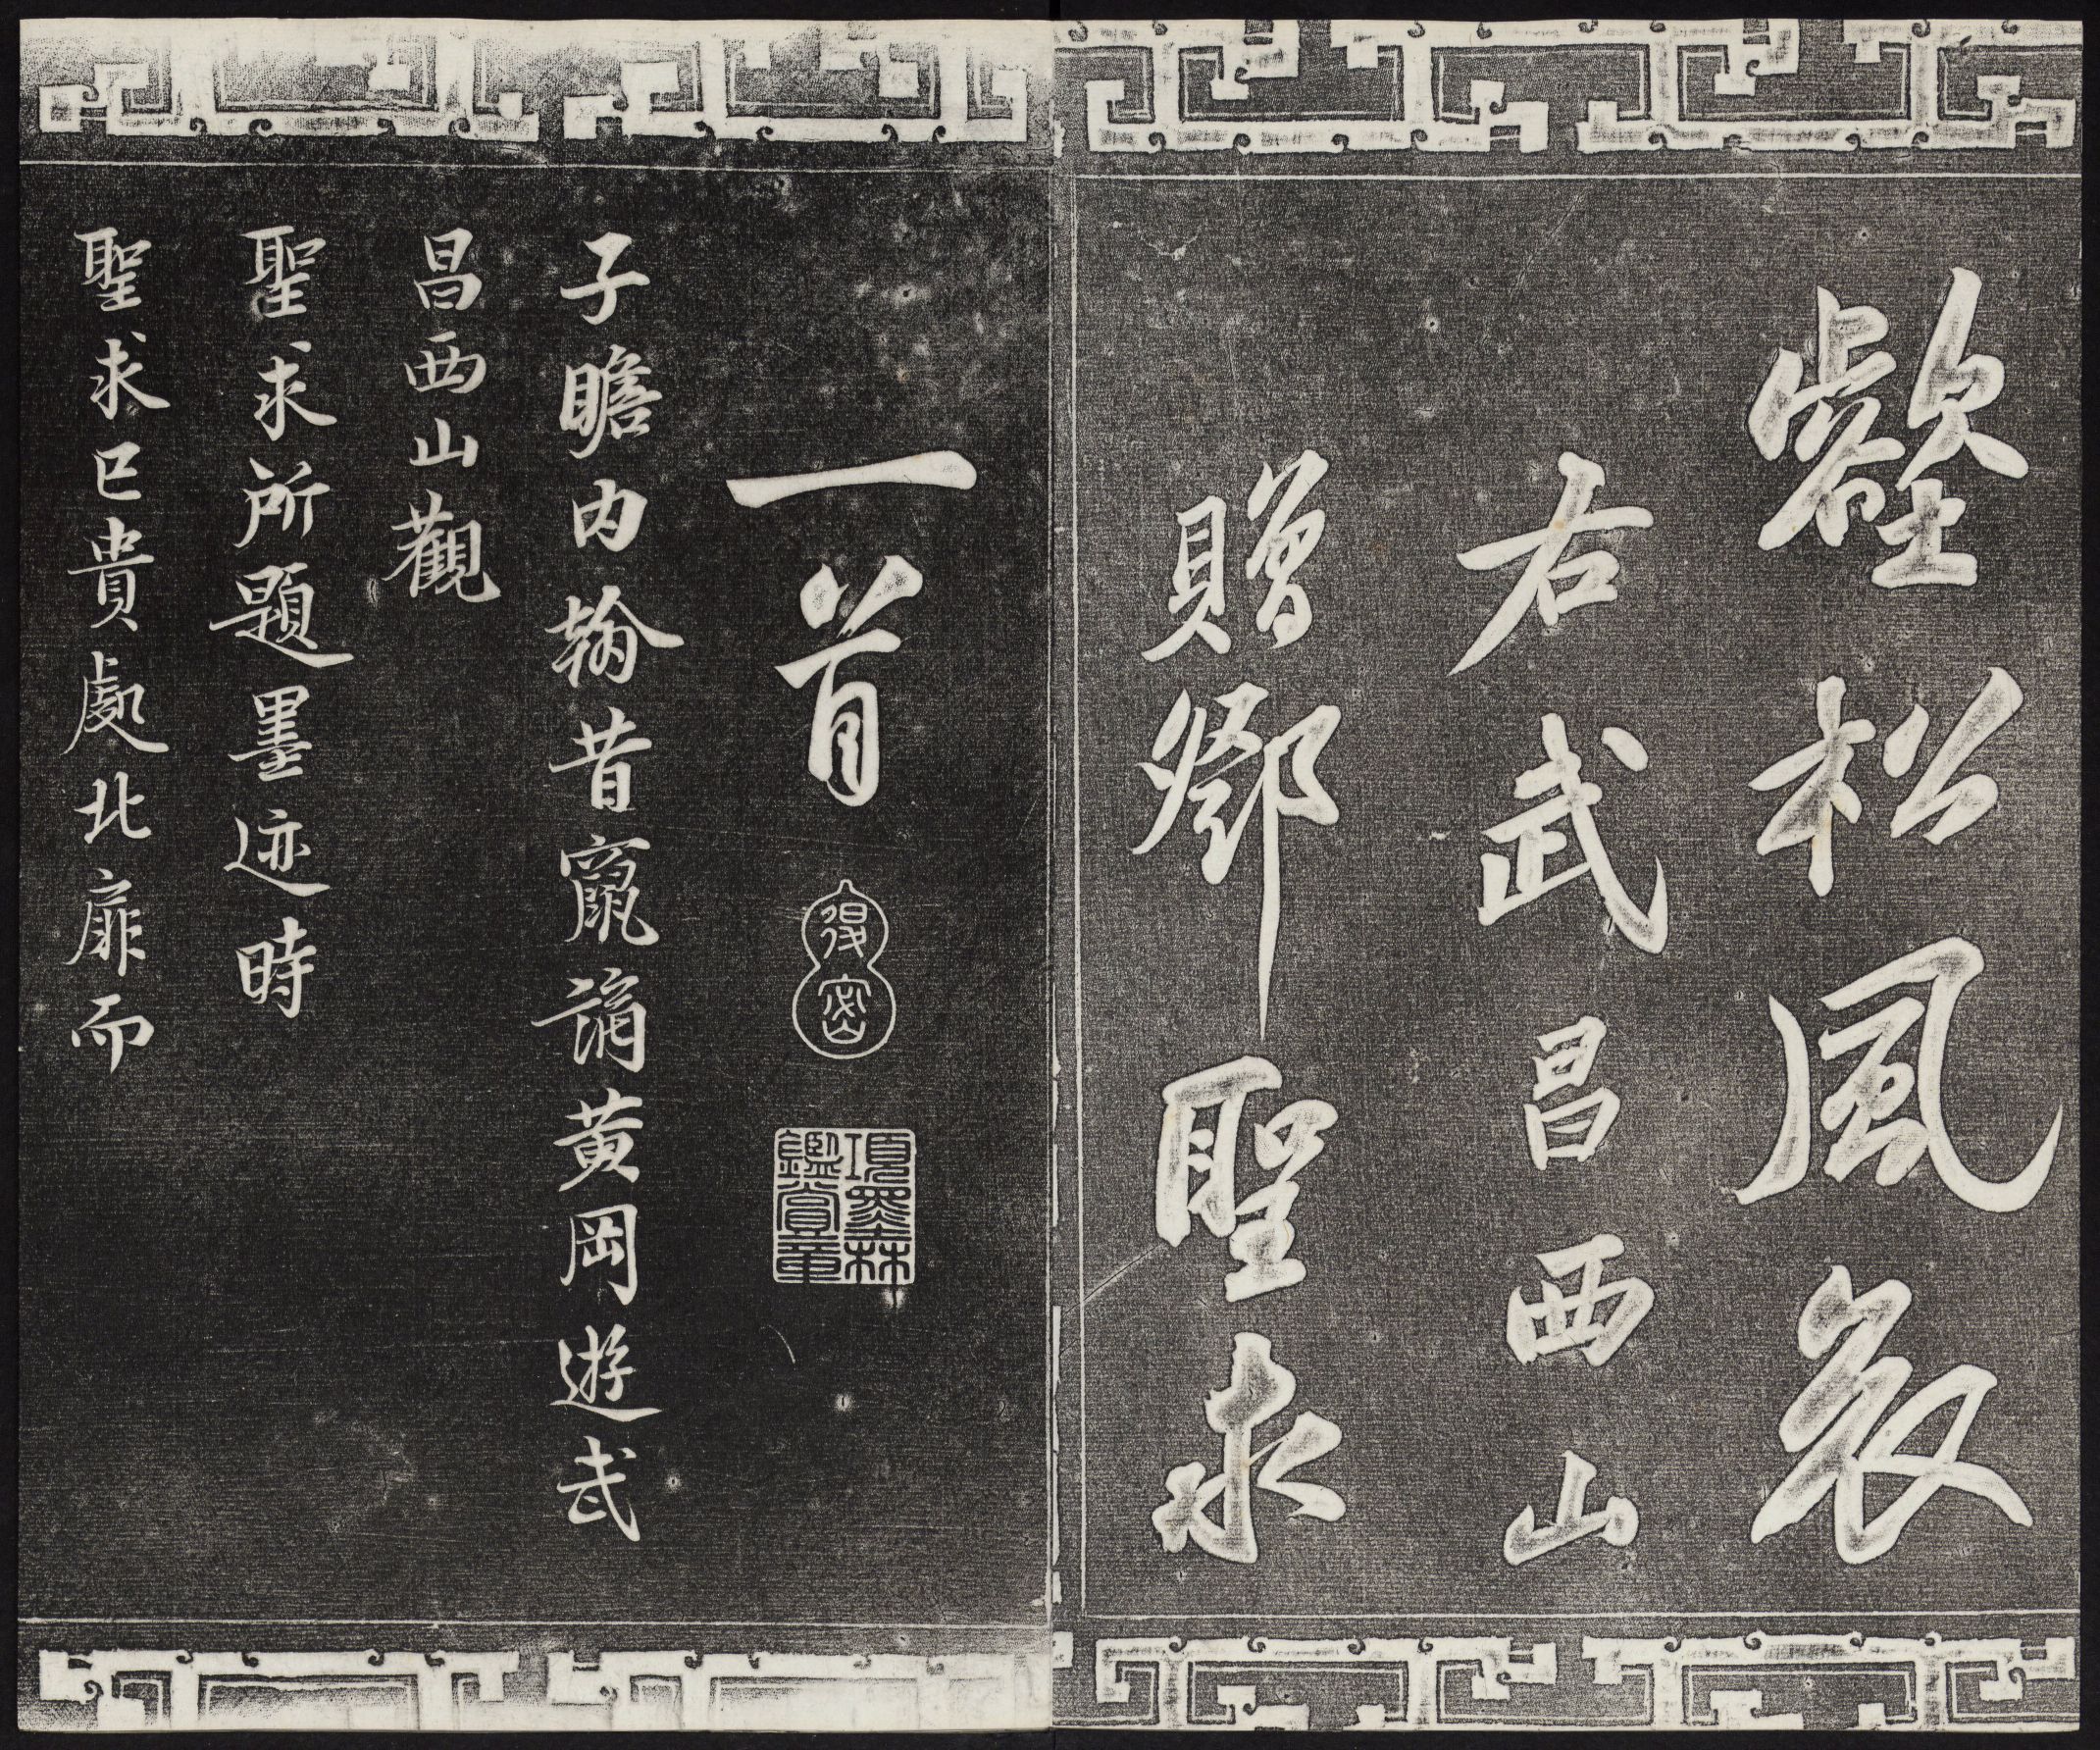 壑松風哀
右武昌西山
贈鄧聖求
一首
退密
項墨林
鑑賞章
子瞻内翰昔竄謫黄岡遊武
昌西山觀
聖求所題墨迹時
聖求已貴處北扉而